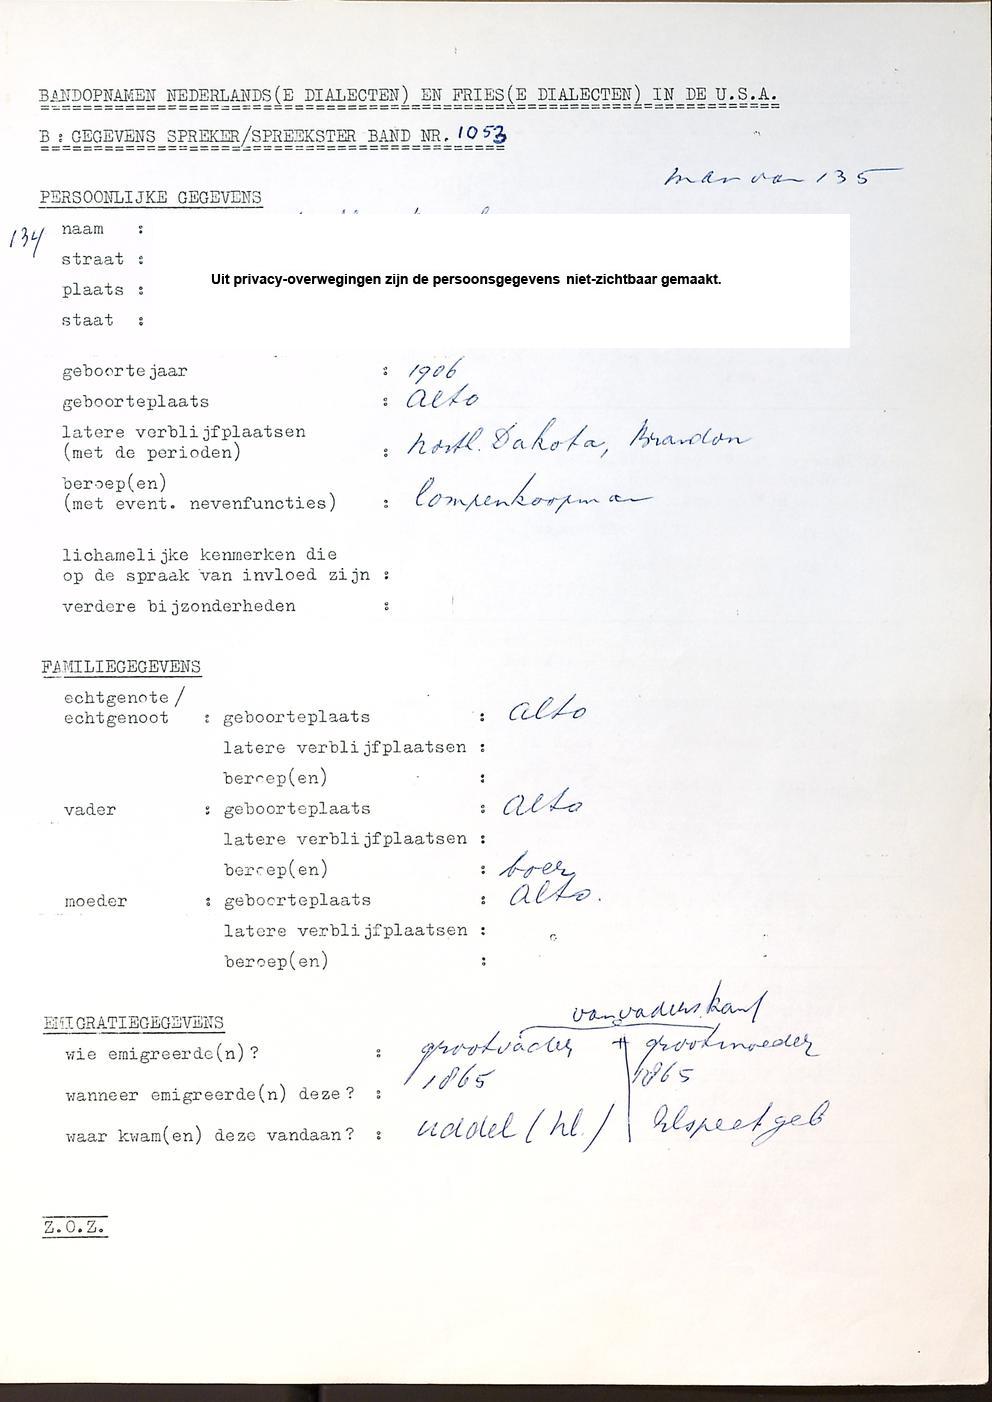 BANDOPNAMEN NEDERLANDS(E DIALECTEN) EN FRIES(E DIALECTEN) IN DE U.S.A.
B : GEGEVENS SPREKER/SPREEKSTER BAND NR. 1053
man van 135
PERSOONLIJKE GEGEVENS
134 naam :
straat :
Uit privacy-overwegingen zijn de persoonsgegevens niet-zichtbaar gemaakt.
plaats :
staat :
geboortejaar : 1906
geboorteplaats : Alto
latere verblijfplaatsen
(met de perioden) : North. Dakota, Brandon
beroep(en)
(met event. nevenfuncties) : lompenkoopman
lichamelijke kenmerken die
op de spraak van invloed zijn :
verdere bijzonderheden :
FAMILIEGEGEVENS
echtgenote/
echtgenoot : geboorteplaats : Alto
latere verblijfplaatsen :
beroep(en) :
vader : geboorteplaats : Alto
latere verblijfplaatsen :
beroep(en) : boer
moeder : geboorteplaats : Alto.
latere verblijfplaatsen :
beroep(en) :
van vaders kant
EMIGRATIEGEGEVENS
wie emigreerde(n)? : grootvader + grootmoeder
wanneer emigreerde(n) deze? : 1865 1865
waar kwam(en) deze vandaan? : Uddel (hl.) Elspeet geb
Z.O.Z.